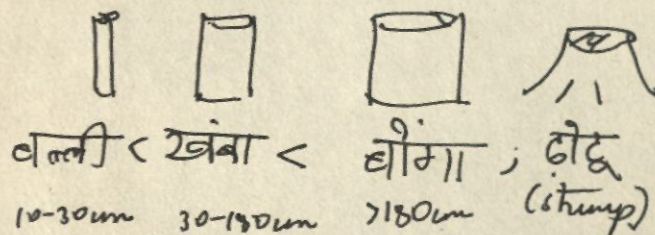 बल्ली < खंबा < बोंगा , ठोठू
10-30cm 30-180cm >180cm (stump)